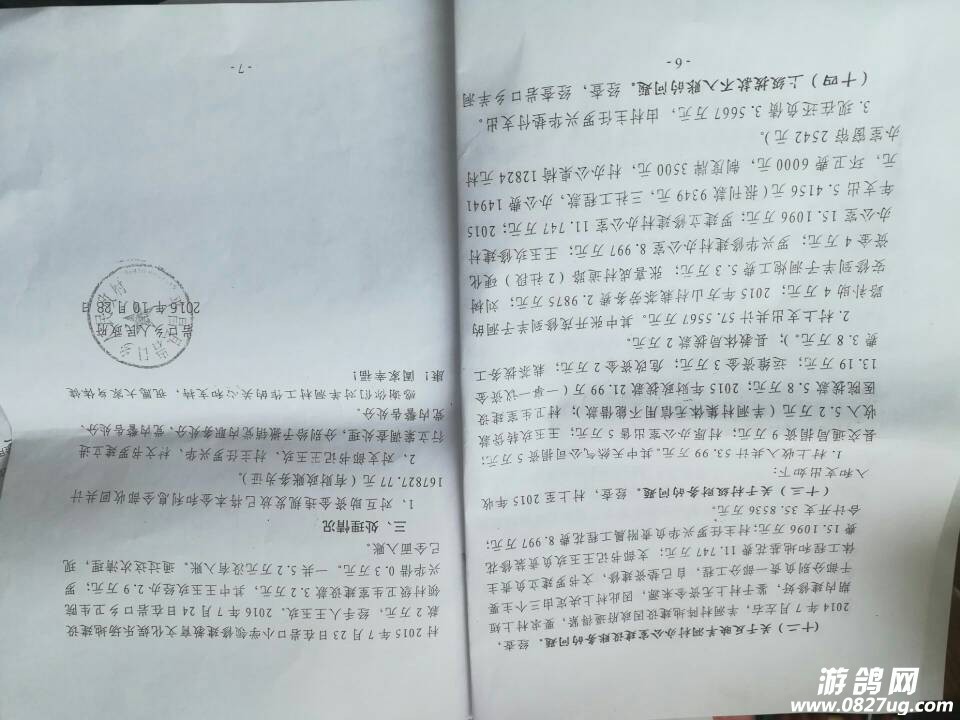 （十二）关于反映羊洞村办公室建设账务的问题。经查，
2014年7月左右，羊洞村阵地建设因政府逼得紧，要求村上短
期内修建好，鉴于村上无资金来源，因此村上决定由三个主要
干部分别负责一部分工程，自己垫资建修，文书罗建立负责主
体工程和地基花费11.747万元；支部书记王玉玖负责装修花
费15.1096万元；村主任罗兴华负责附属工程花费8.997万元，
合计开支35.8536万元。
（十三）关于村财务的问题。经查，村上至2015年收
入和支出如下：
1.村上收入共计53.99万元。其中天然气公司捐资5万元；
县交通局捐资9万元；村原办公室出售5万元；王玉玖转贷款
收入5.2万元（羊洞村集体无信用不能借款）；村卫生室建设
医院拨款5.8万元；2015年财政拨款21.99万（一事一议资金
13.19万元；运维资金3万元；危改资金2万元；栽茶拨务工
费3.8万元。）；县教体局拨款2万元。
2.村上支出共计57.5567万元。其中张开茂修到羊子洞的
路补助4万元；2015年方山村栽茶劳务费2.9875万元；刘树
安修到羊子洞炮工费5.3万元；张喜成村道路（2社段）硬化
资金4万元；罗兴华修建村办公室8.997万元；王玉玖修建村
办公室15.1096万元；罗建立修建村办公室11.747万元；2015
年支出5.4156万元（报刊款9349元，三社工程款，办公费14941
元，环卫费6000元，制度牌3500元，村办公桌椅12824元村
办室窗帘2542元）。
3.现在还负债3.5667万元，由村主任罗兴华垫付支出。
（十四）上级拨款不入账的问题。经查，经查岩口乡羊洞
-6-
村2015年7月23日在岩口小学领修建教育文化娱乐场地建设
款2万元，经手人王玉玖。2016年7月24日在岩口乡卫生院
领村级卫生室建设款3.2万元，其中王玉玖经办2.9万元，罗
兴华借0.3万元。一共5.2万元没有入账。通过这次清理，现
已全面入账。
三、处理情况
1、对互助资金违规发放已将本金和利息全部收回共计
167827.77元（有财政账务为证）
2、对支部书记王玉玖、村主任罗兴华、村文书罗建立进
行立案调查处理，分别给予撤销党内职务处分、党内警告处分、
党内警告处分。
感谢你们对羊洞村工作的关心和支持，祝愿大家身体健
康！阖家幸福！
岩口乡人民政府
2016年10月28日
-7-
游鸽网
www.0827ug.com